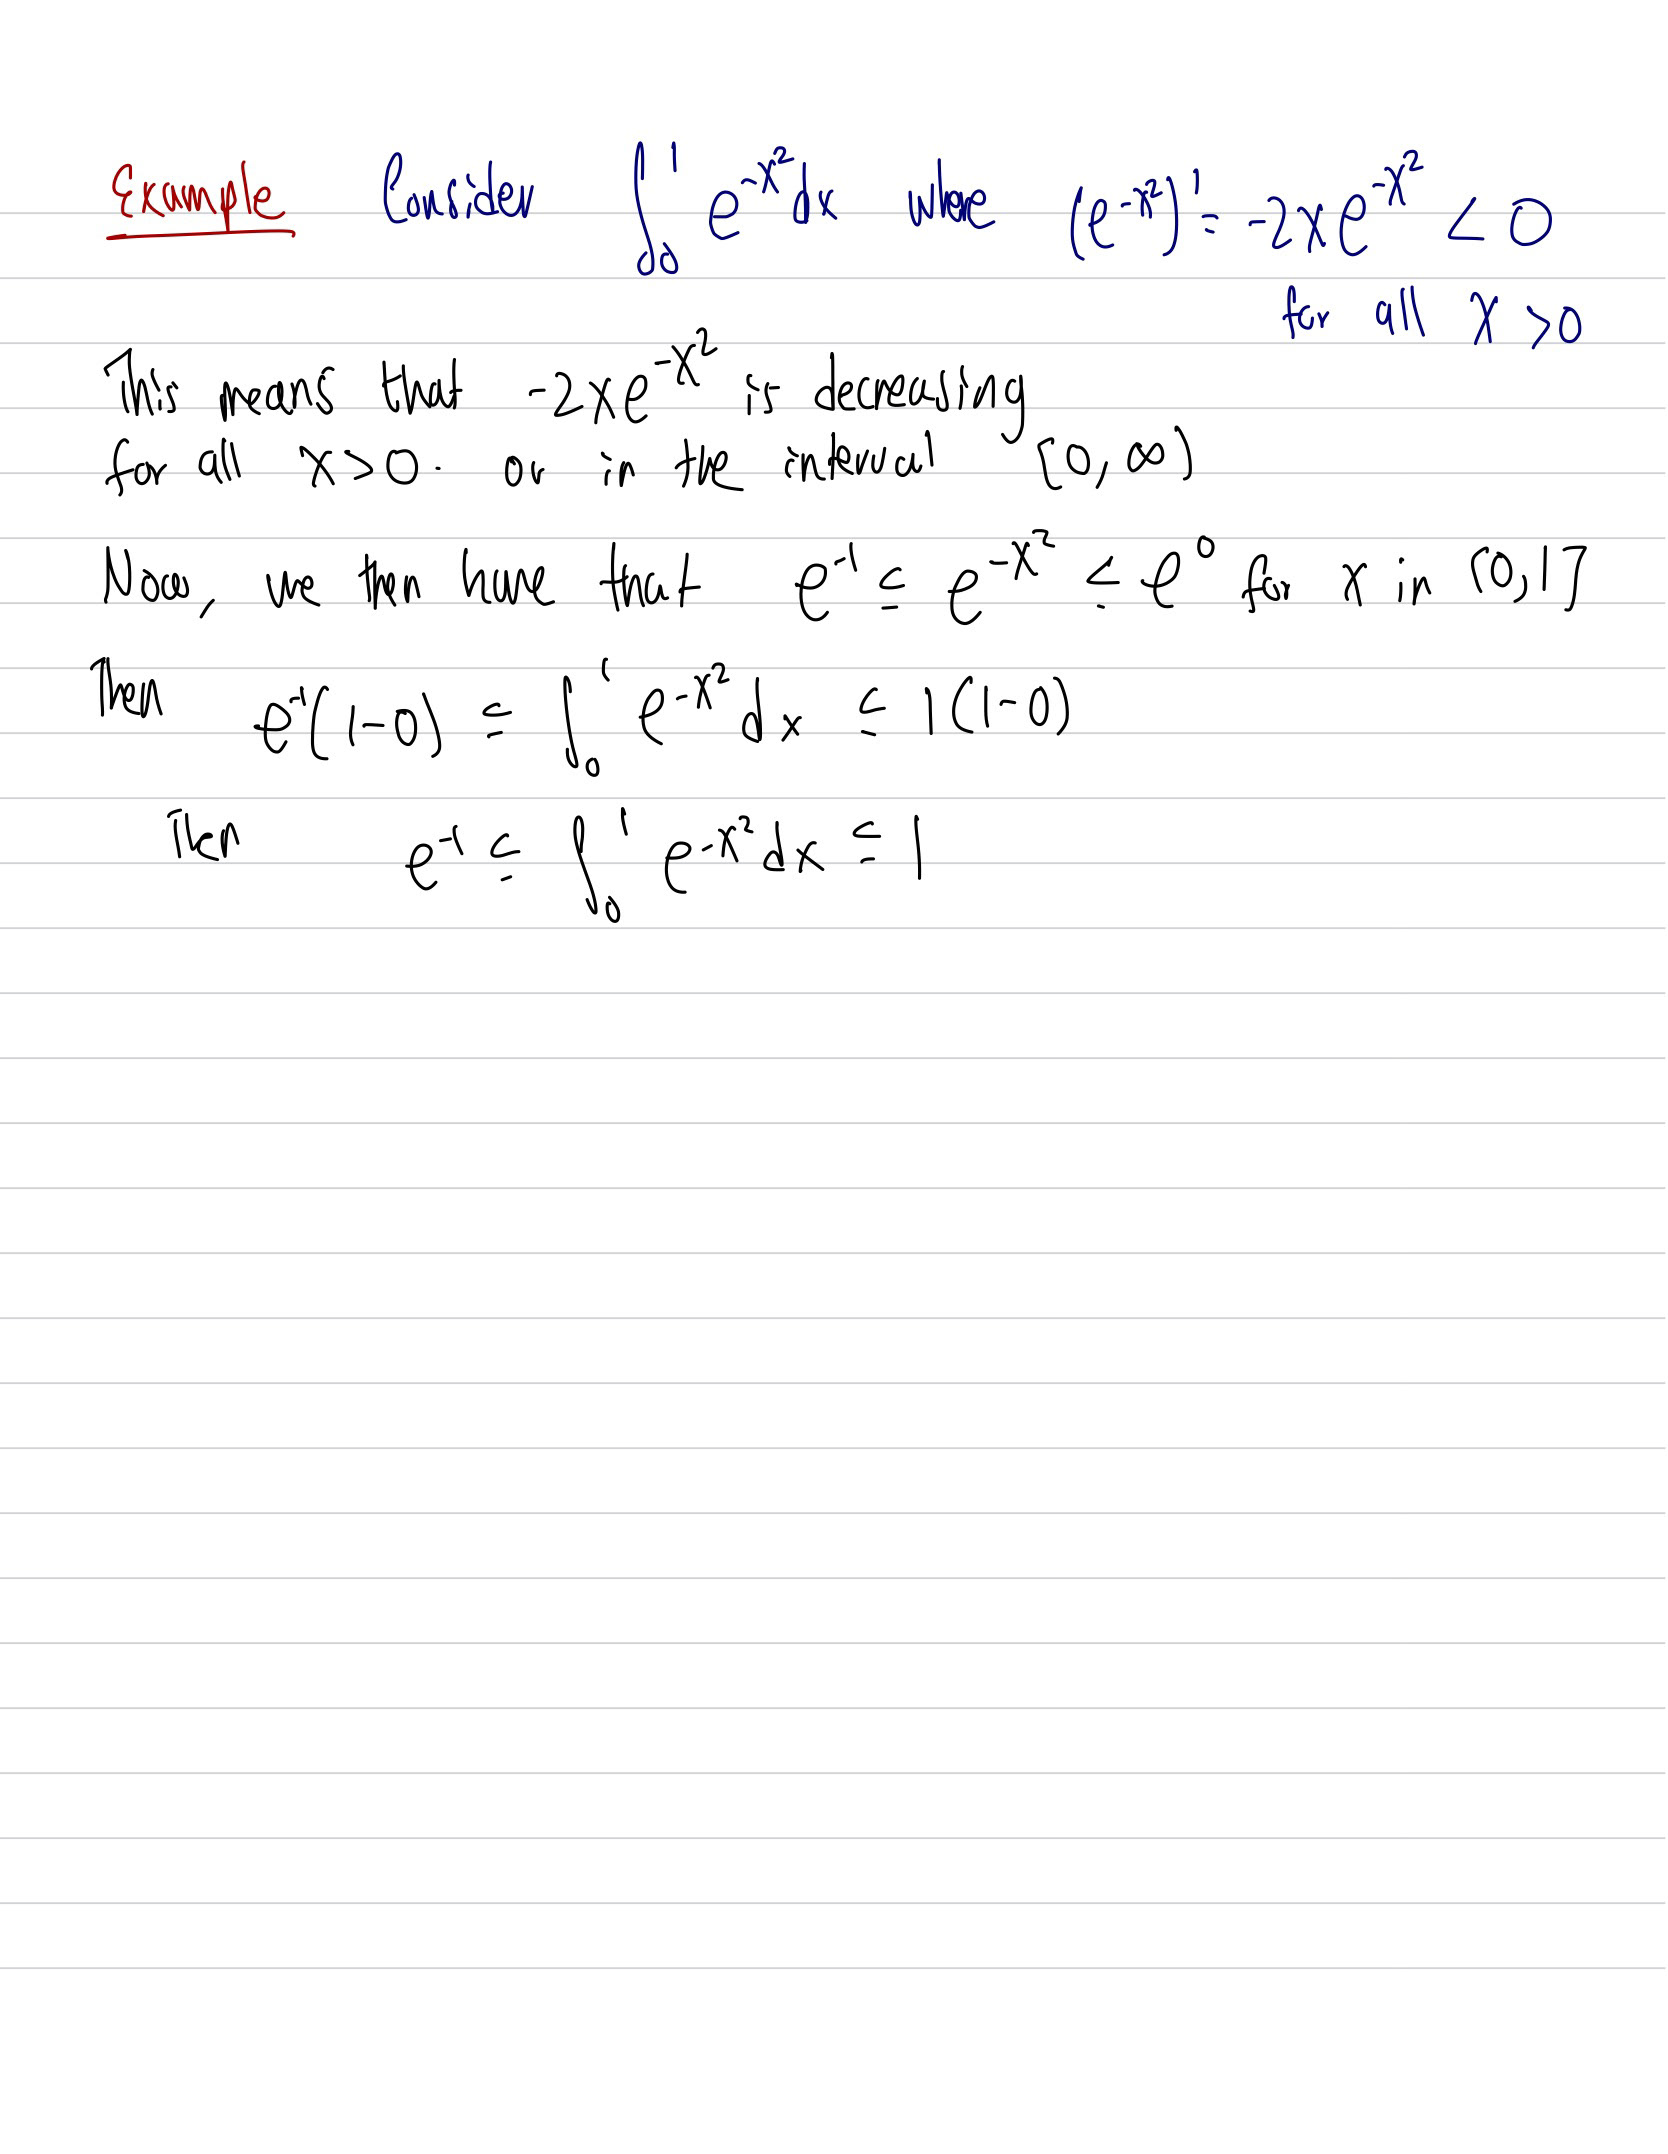 Example Consider ∫₀¹ e^{-x²} dx where (e^{-x²})' = -2xe^{-x²} < 0
for all x > 0
This means that -2xe^{-x²} is decreasing
for all x > 0. or in the interval [0, ∞)
Now, we then have that e^{-1} ≤ e^{-x²} ≤ e^0 for x in [0, 1]
Then e^{-1}(1-0) ≤ ∫₀¹ e^{-x²} dx ≤ 1(1-0)
Then e^{-1} ≤ ∫₀¹ e^{-x²} dx ≤ 1